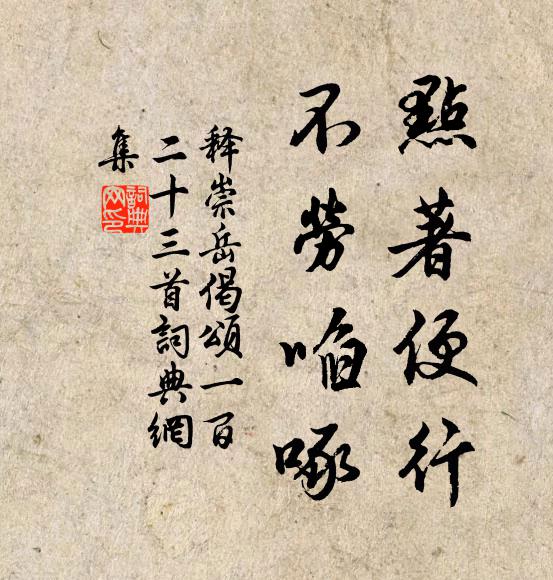 點著便行
不勞啗啄
释崇岳偈頌一百
二十三首詞典網
集
詞典网印